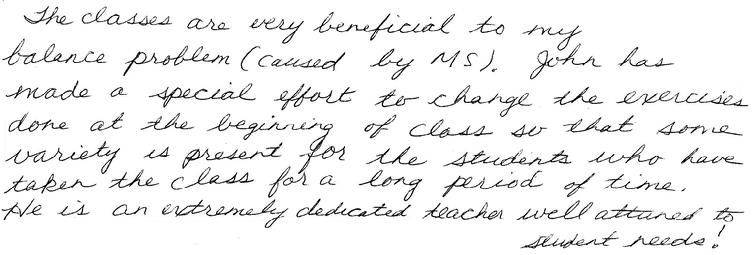 The classes are very beneficial to my
balance problem (caused by MS). John has
made a special effort to change the exercises
done at the beginning of class so that some
variety is present for the students who have
taken the class for a long period of time.
He is an extremely dedicated teacher well attuned to
student needs!